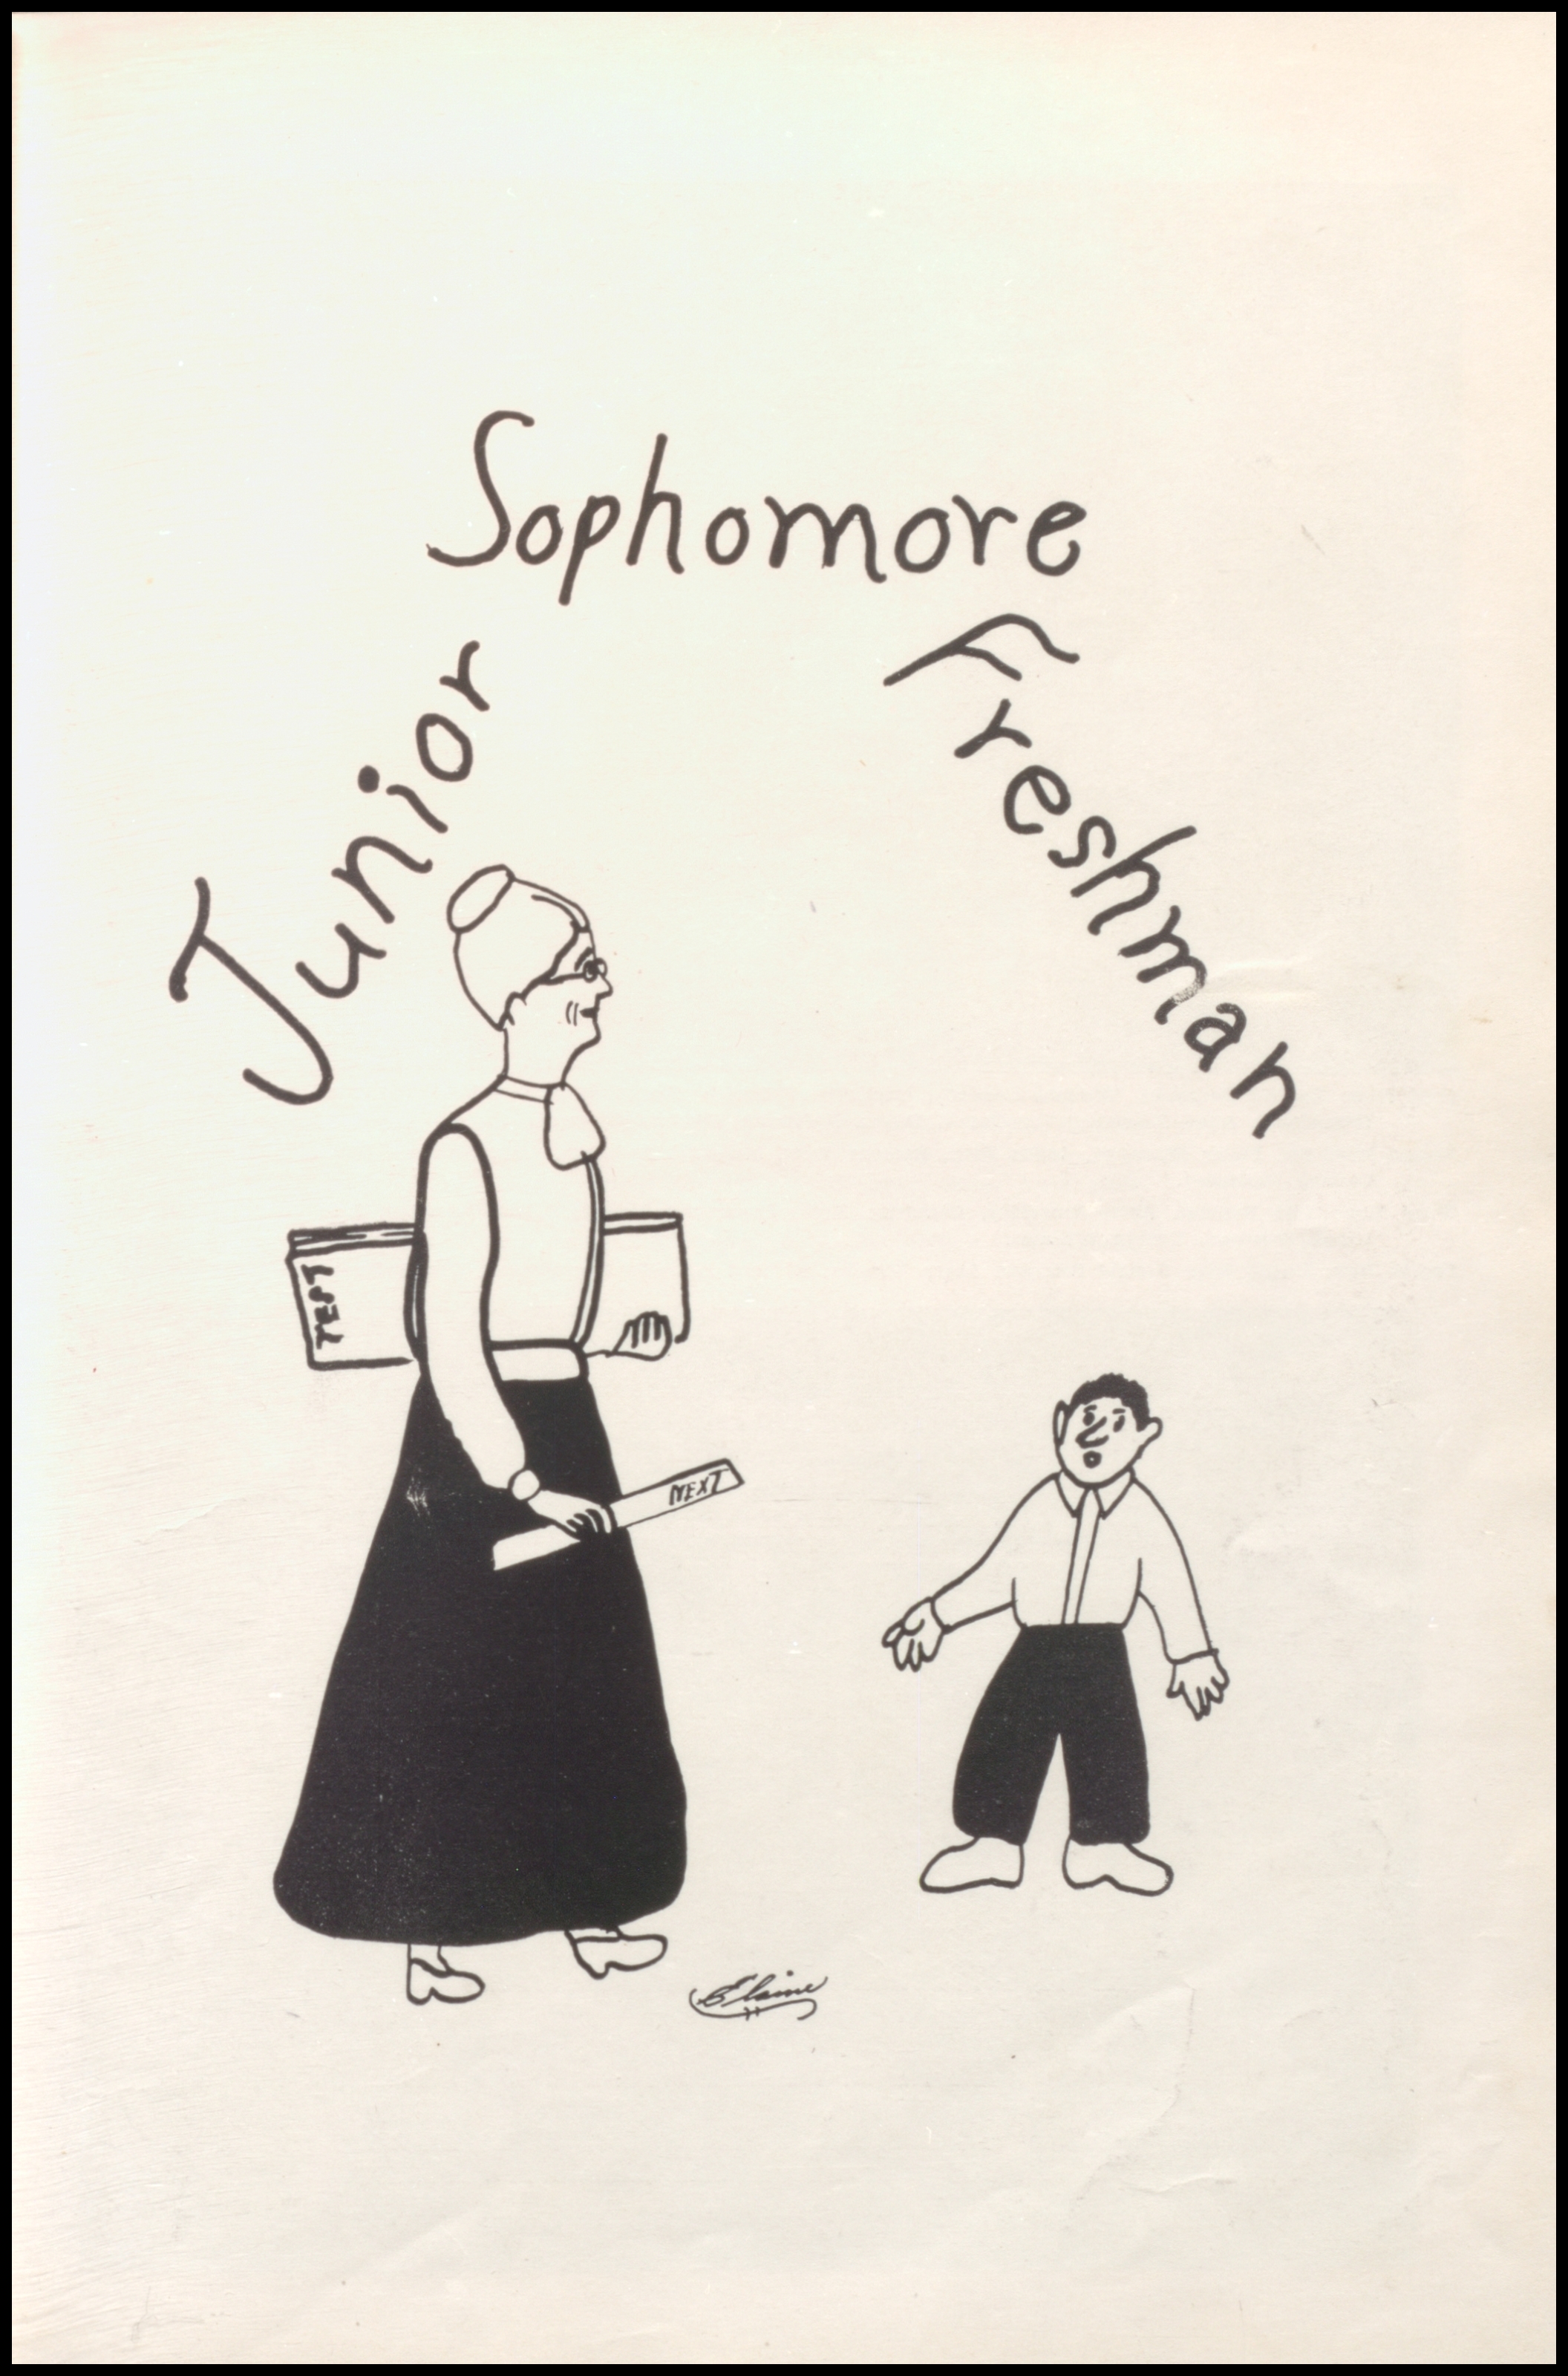 Sophomore
Junior
Freshman
TEST
NEXT
Elaine